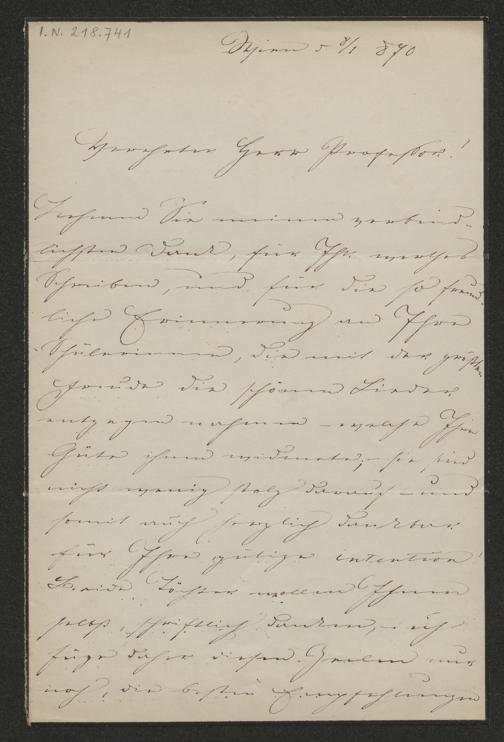 I.N. 218.741
Wien 5 8/1 870
Verehrter Herr Professor!
Nehmen Sie meinen verbind-
lichsten Dank, für Ihr werthes
Schreiben, und für die so freund-
liche Erinnerung an Ihre
Schülerinnen, die mit der größten
Freude die schönen Lieder
entgegen nahmen – welche Ihre
Güte ihnen widmete; – sie sind
nicht wenig stolz darauf – und
somit auch herzlich dankbar
für Ihre gütige intention!
Beide Töchter wollen Ihnen
selbst, schriftlich danken, – ich
füge daher diesen Zeilen nur
noch, die besten Empfehlungen